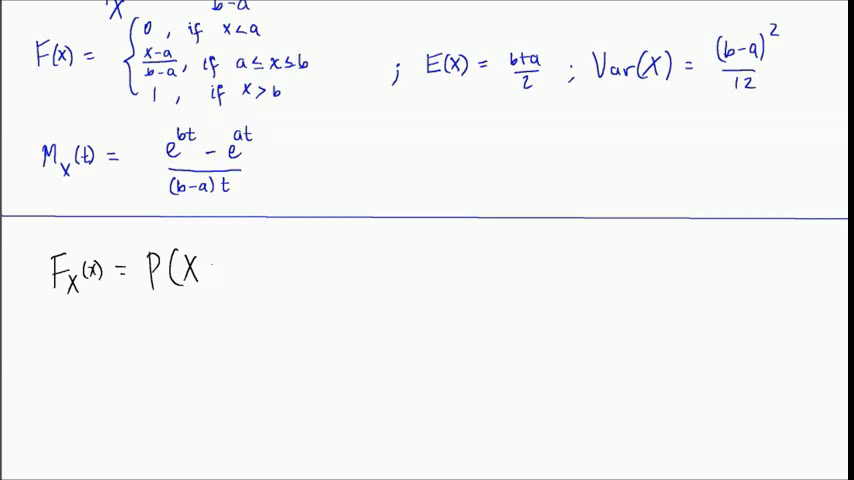 X b-a
F(x) = { 0 , if x<a
x-a/b-a , if a≤x≤b ; E(X) = b+a/2 ; Var(X) = (b-a)²/12
1 , if x>b
M_X(t) = e^bt - e^at / (b-a)t
F_X(x) = P(X